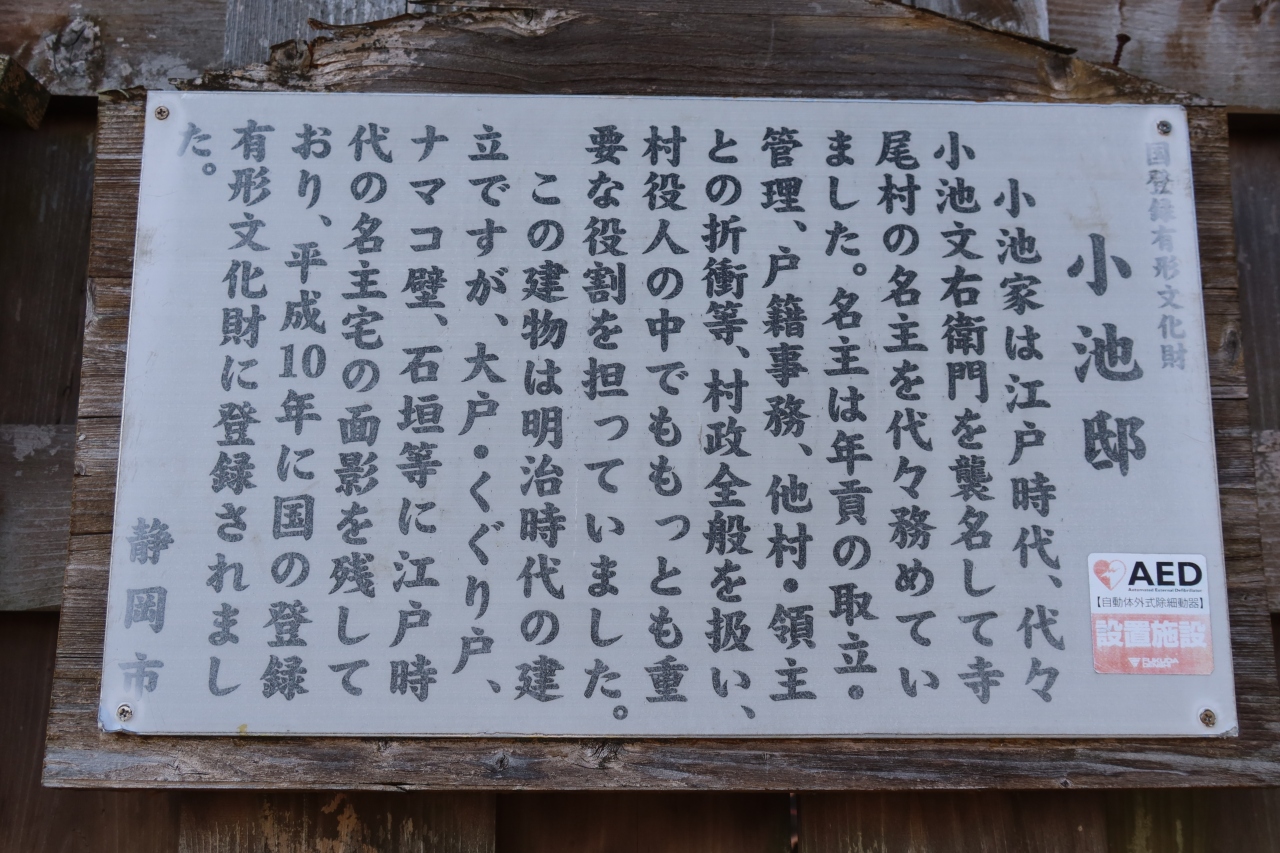 国登録有形文化財
小池邸
小池家は江戸時代、代々
小池文右衛門を襲名して寺
尾村の名主を代々務めてい
ました。名主は年貢の取立・
管理、戸籍事務、他村・領主
との折衝等、村政全般を扱い、
村役人の中でももっとも重
要な役割を担っていました。
この建物は明治時代の建
立ですが、大戸・くぐり戸、
ナマコ壁、石垣等に江戸時
代の名主宅の面影を残して
おり、平成10年に国の登録
有形文化財に登録されまし
た。
静岡市
AED
Automated External Defibrillator
【自動体外式除細動器】
設置施設
FUKUDA
DENSHI